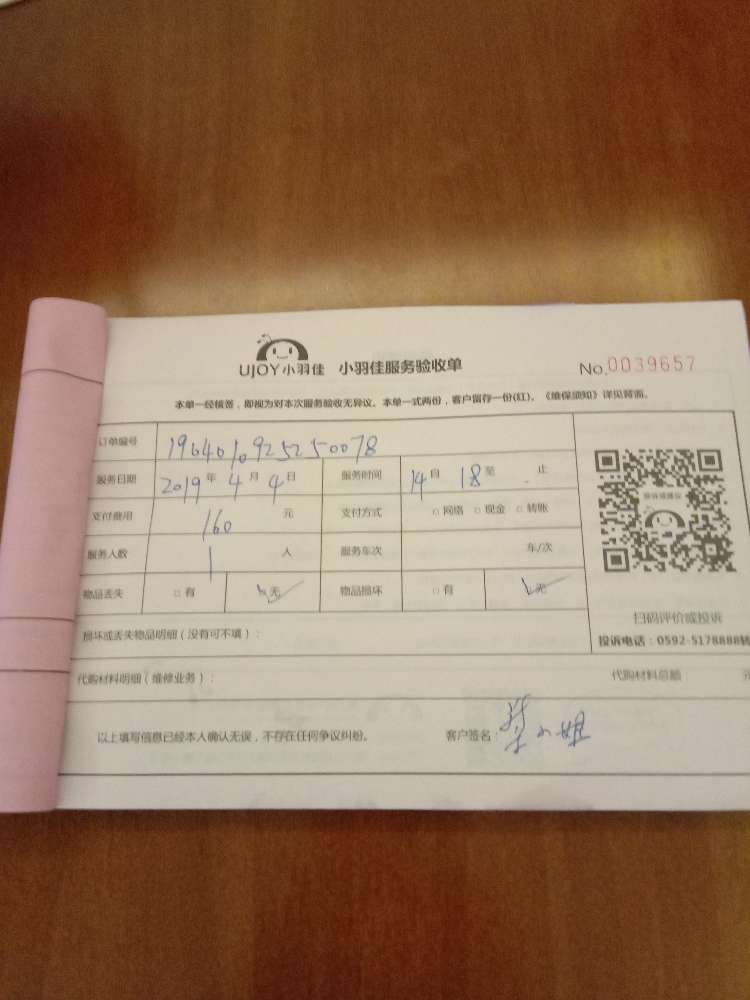 UJOY小羽佳 小羽佳服务验收单 No.0039657
本单一经核签，即视为对本次服务验收无异议。本单一式两份，客户留存一份(红)，《维保须知》详见背面。
订单编号 1964010925250078
服务日期 2019年4月4日 服务时间 14自 18至 止
支付费用 160 元 支付方式 □网络 □现金 □转账
服务人数 1 人 服务车次 车/次
物品丢失 □有 □无 物品损坏 □有 □无
扫码评价或投诉
投诉电话：0592-5178888转
损坏或丢失物品明细（没有可不填）：
代购材料明细（维修业务）： 代购材料总额： 元
以上填写信息已经本人确认无误，不存在任何争议纠纷。 客户签名： 小姐